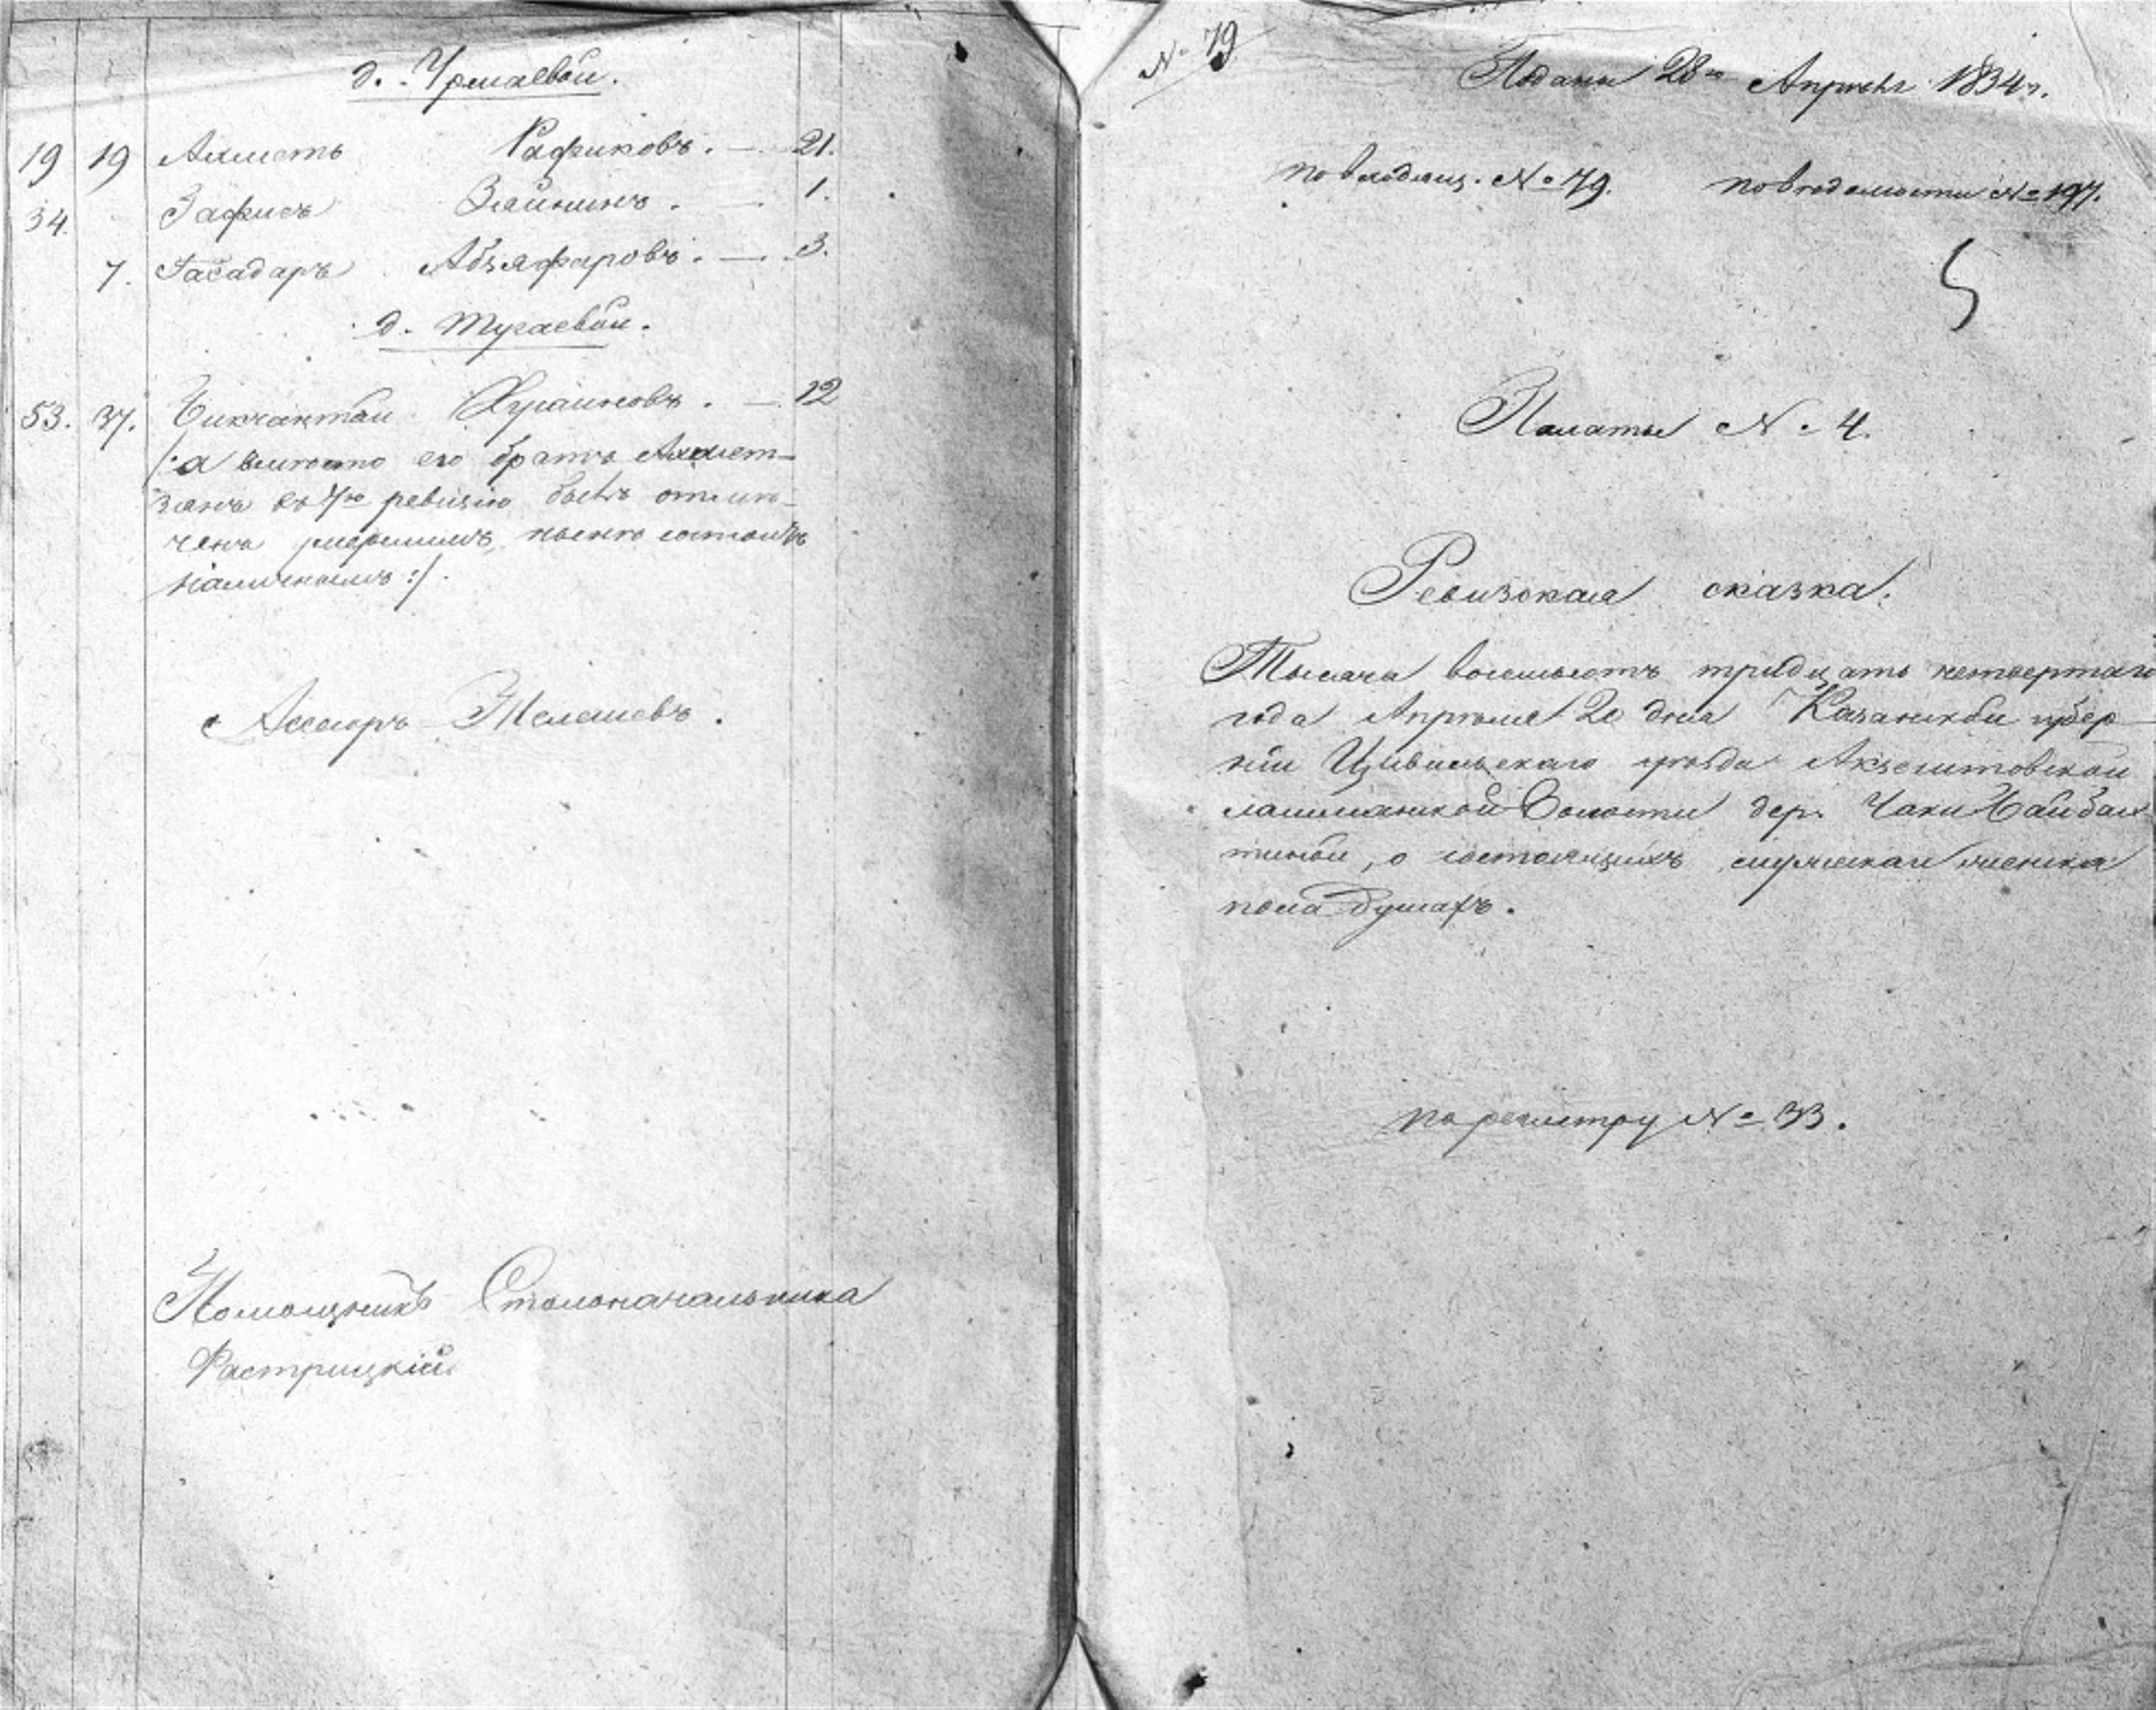 д. Урмаевой.
19 19 Ахметь Рафиковъ. — 21.
34. Зафисъ Зейнинъ. — 1.
7. Гасадаръ Абзяфаровъ. — 3.
д. Тугаевой.
53. 37. Бикчантаи — 12
/:а вместо его братъ Ахмет-
занъ въ 7ю ревизiю былъ отмѣ-
ченъ умершимъ, ныне состоитъ
наличнымъ:/.
Асесоръ Телешевъ.
Помощникъ Столоначальника
Растрицкiй
№ 79
Подана 28го Апреля 1834 г.
по входящ. № 79. по вѣдомости № 197.
5
Палаты № 4.
Ревизская сказка.
Тысяча восемьсотъ тридцать четвертаго
года Апреля 20 дня Казанской губер-
нiи Цивильскаго уезда Акзегитовской
лашманской Волости дер. Чаки
о состоящихъ мужеска и женска
пола душахъ.
по регистру № 33.